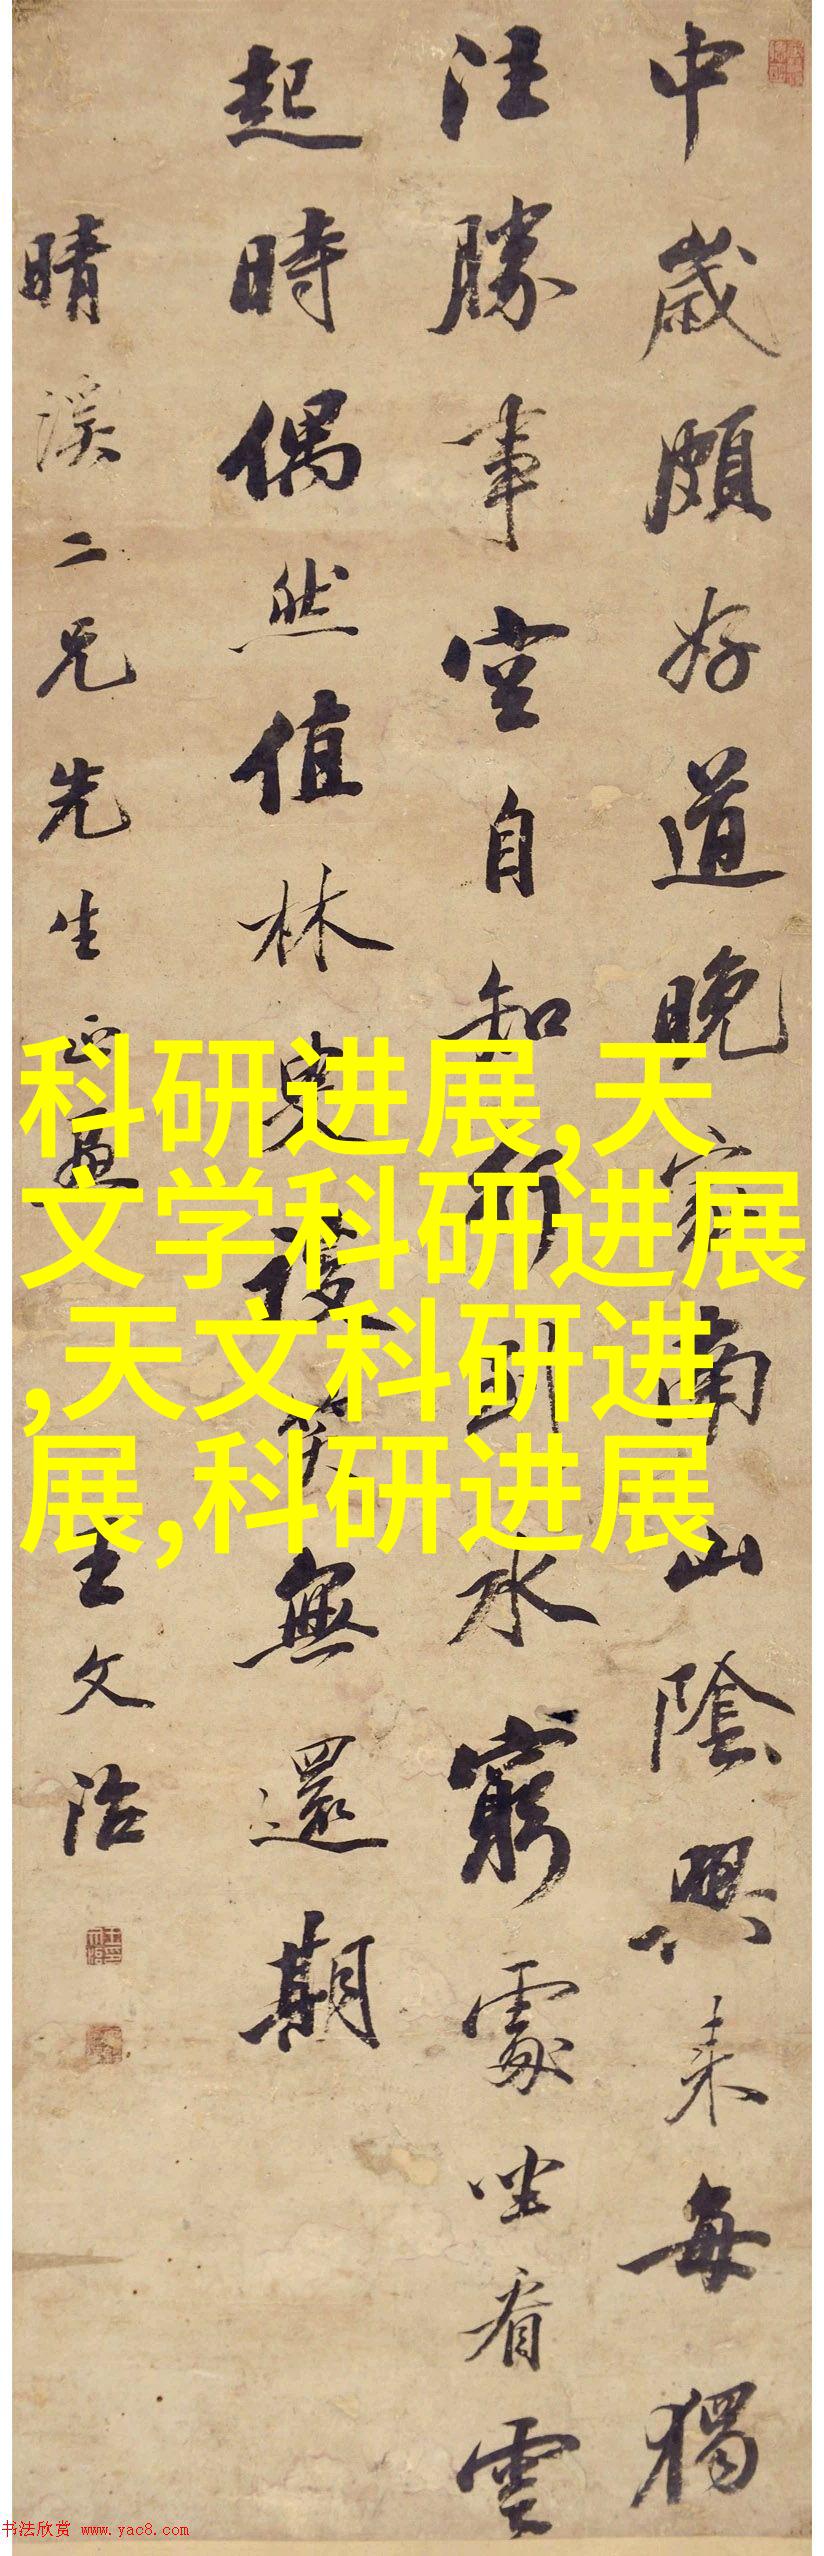 中歲頗好道晚家南山陰興來每獨
往勝事空自知行到水窮處坐看雲
起時偶然值林叟談笑無還期
晴溪二兄先生正
王文治
科研进展,天
文学科研进展
,天文科研进
展,科研进展
书法欣赏 www.yac8.com